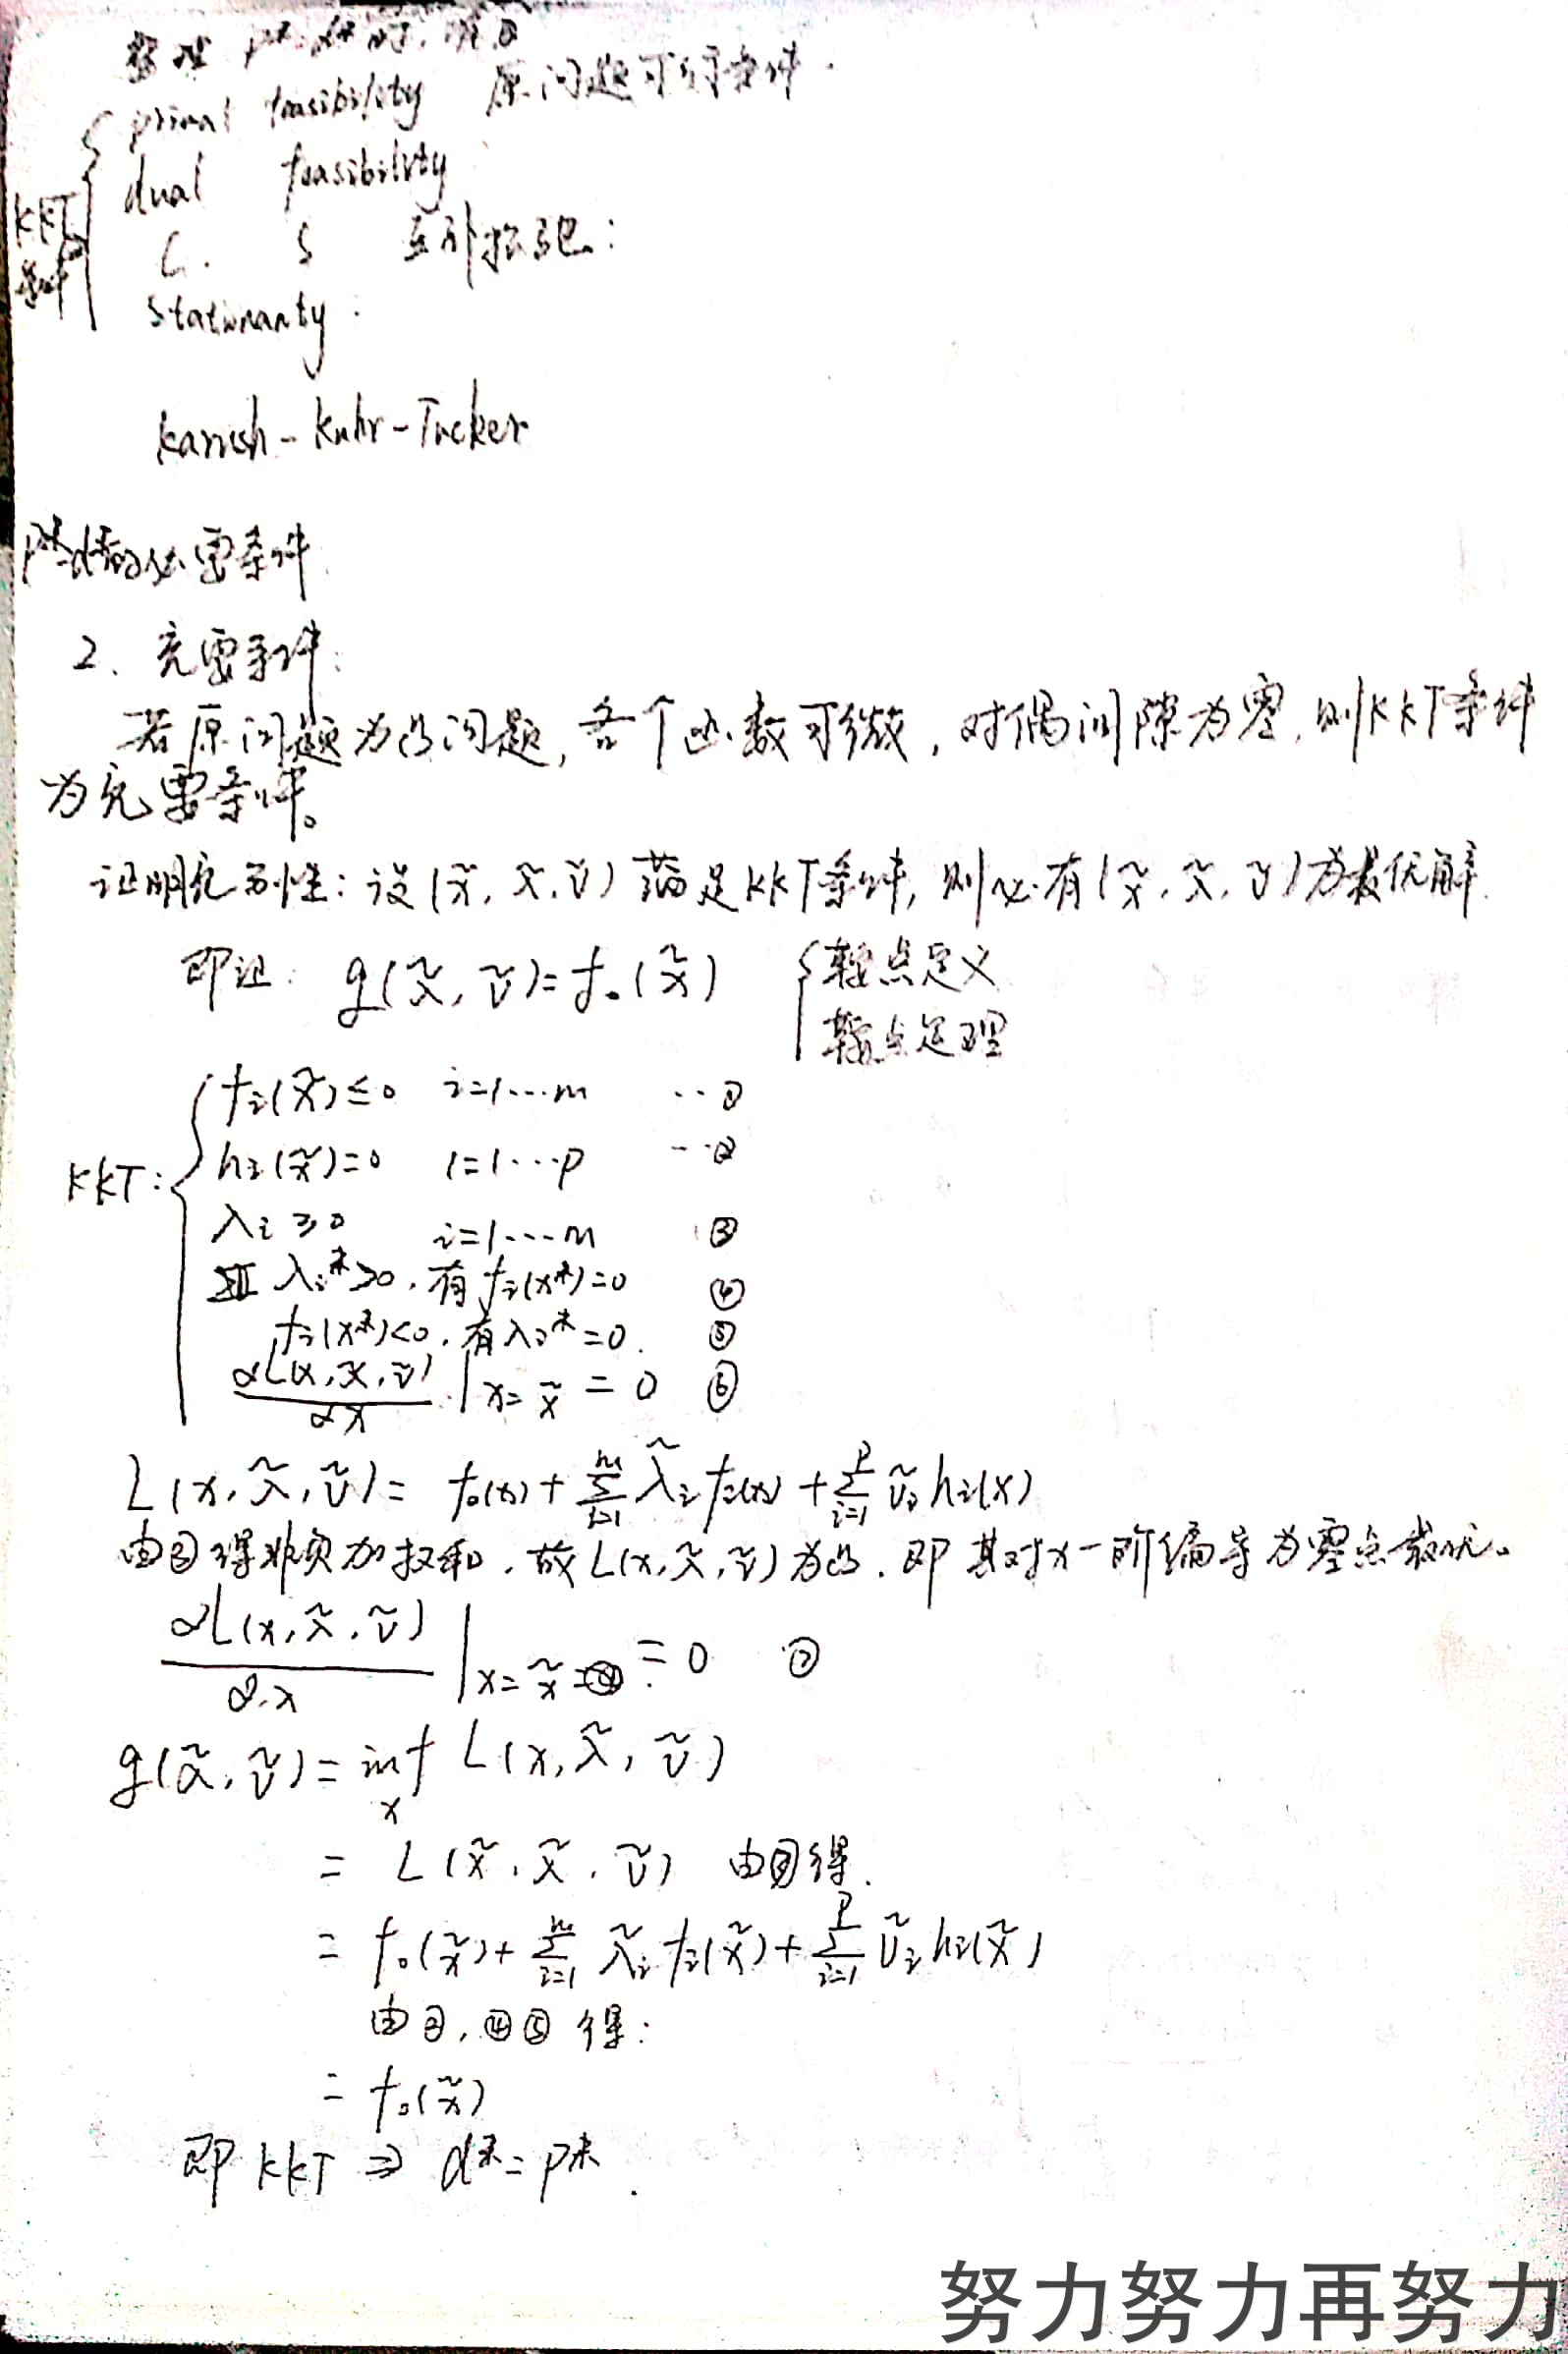 整理 p*=d* 时,
primal feasibility 原问题可行条件.
dual feasibility
KKT条件 { C. S 互补松弛:
stationarity:
karush-kuhr-Tucker
p*=d*的必要条件.
2、充要条件:
若原问题为凸问题,各个函数可微,对偶间隙为零,则KKT条件
为充要条件。
证明充分性:设(x̃, λ̃, ṽ) 满足KKT条件,则必有(x̃, λ̃, ṽ)为最优解.
即证: g(λ̃, ṽ)=f₀(x̃) { 鞍点定义
鞍点定理
fᵢ(x̃)≤0 i=1···m ··①
KKT: { hᵢ(x̃)=0 i=1···p ··②
λᵢ≥0 i=1···m ③
λᵢ*>0, 有fᵢ(x*)=0 ④
fᵢ(x*)<0, 有λᵢ*=0. ⑤
∂L(x,λ̃,ṽ)/∂x |x=x̃ = 0 ⑥
L(x,λ̃,ṽ)= f₀(x)+ Σᵢ₌₁ᵐ λ̃ᵢfᵢ(x) + Σᵢ₌₁ᵖ ṽᵢhᵢ(x)
由③得非负加权和,故L(x,λ̃,ṽ)为凸.即其对x一阶偏导为零点最优。
∂L(x,λ̃,ṽ)/∂x |x=x̃ = 0 ⑦
g(λ̃,ṽ)= inf L(x,λ̃,ṽ)
x
= L(x̃,λ̃,ṽ) 由⑦得.
= f₀(x̃)+ Σᵢ₌₁ᵐ λ̃ᵢfᵢ(x̃)+ Σᵢ₌₁ᵖ ṽᵢhᵢ(x̃)
由②,④⑤得:
= f₀(x̃)
即 KKT ⇒ d*=p*.
努力努力再努力